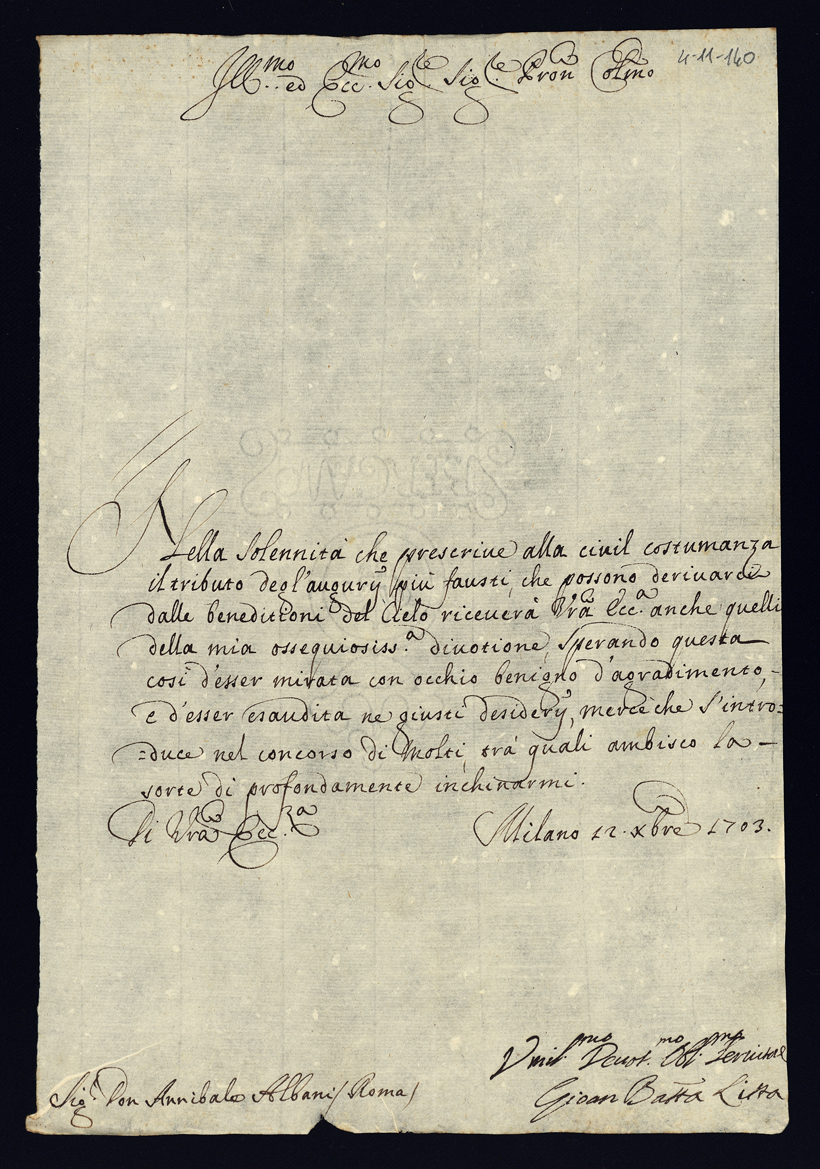 4-11-140
Ill.mo ed Ecc.mo Sig.re Sig.re Pron Colmo
Nella Solennità che prescriue alla civil costumanza
il tributo degl'augurÿ più fausti, che possono deriuarci
dalle beneditioni del Cielo riceuerà Vrã Ecc.a anche quelli
della mia ossequiosiss.a diuotione, sperando questa
così d'esser mirata con occhio benigno d'agradimento,-
e d'esser esaudita ne giusti desiderÿ, mercè che s'intro=
=duce nel concorso di Molti, trà quali ambisco la -
sorte di profondamente inchinarmi.
Di Vrã Ecc.za
Milano 12. xbre 1703.
Vmil.mo Deuot.mo Obl.mo Seruitore
Gioan Batta Litta
Sig.r Don Annibale Albani / Roma /